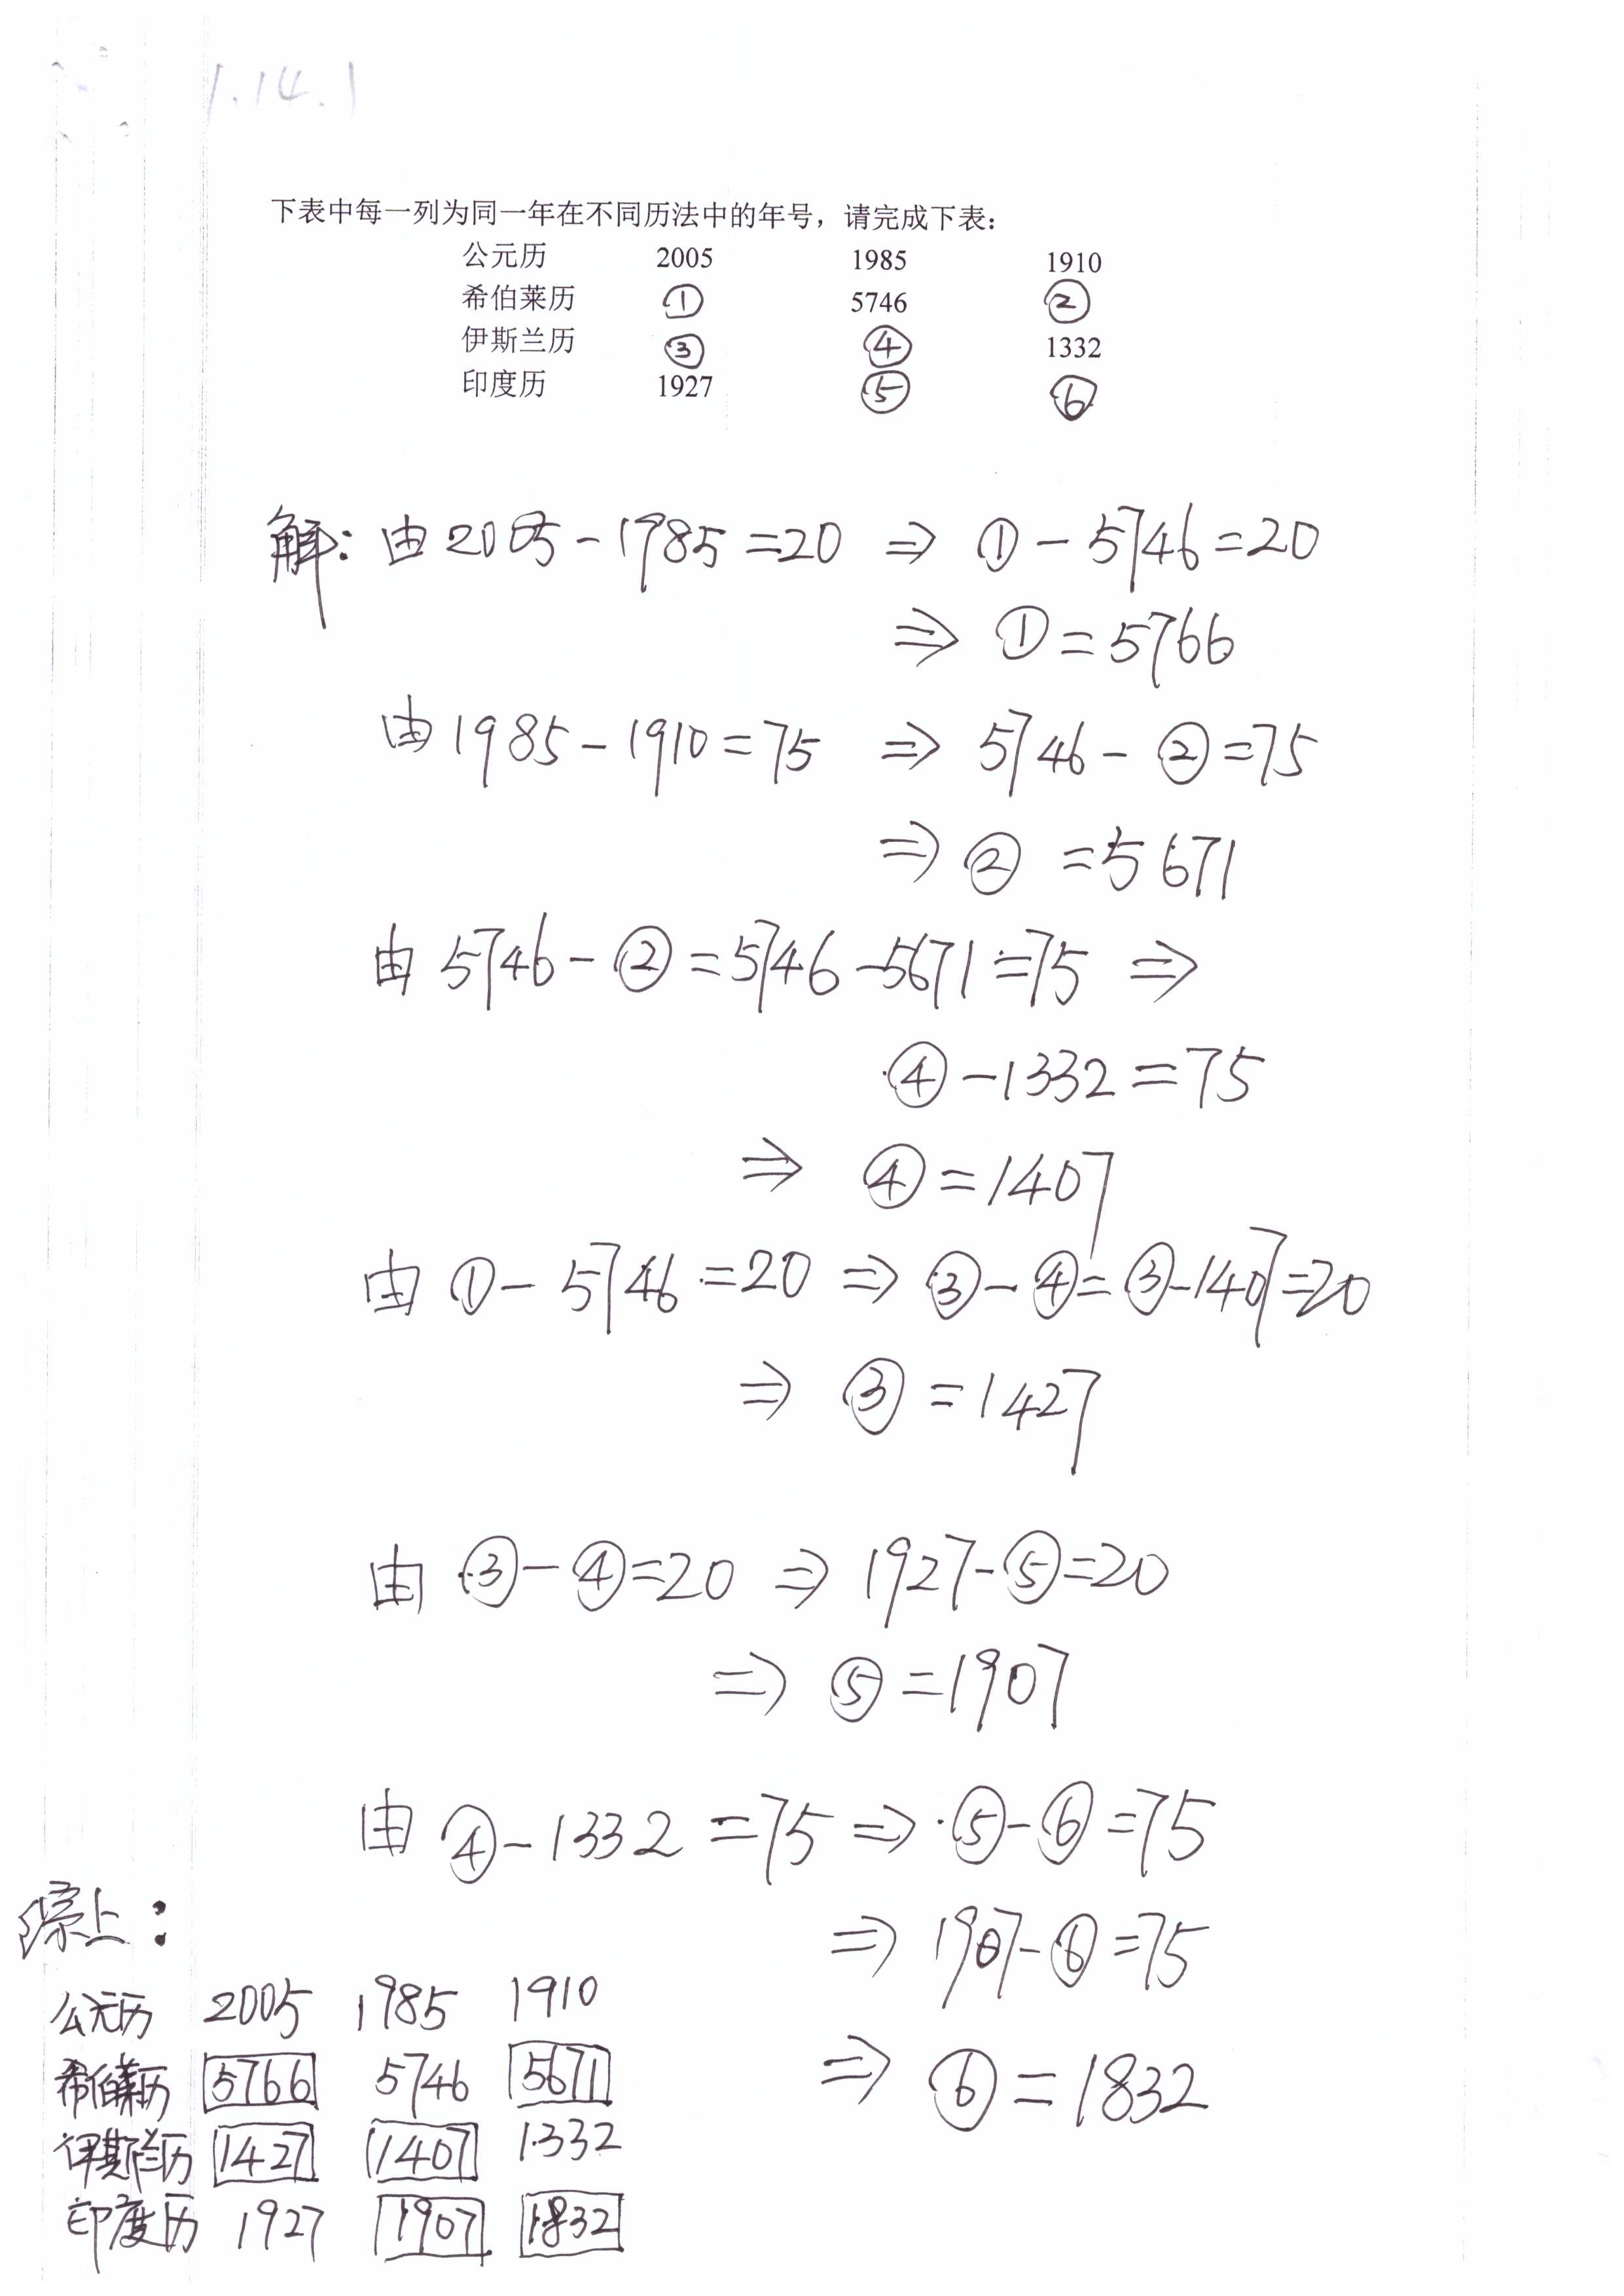 1.14.1
下表中每一列为同一年在不同历法中的年号，请完成下表：
公元历 2005 1985 1910
希伯莱历 ① 5746 ②
伊斯兰历 ③ ④ 1332
印度历 1927 ⑤ ⑥
解：由2005-1985=20 ⇒ ①-5746=20
⇒ ①=5766
由1985-1910=75 ⇒ 5746-②=75
⇒ ②=5671
由 5746-②=5746-5671=75 ⇒
④-1332=75
⇒ ④=1407
由 ①-5746=20 ⇒ ③-④=③-1407=20
⇒ ③=1427
由 ③-④=20 ⇒ 1927-⑤=20
⇒ ⑤=1907
由 ④-1332=75 ⇒ ⑤-⑥=75
⇒ 1907-⑥=75
⇒ ⑥=1832
综上：
公元历 2005 1985 1910
希伯莱历 5766 5746 5671
伊斯兰历 1427 1407 1332
印度历 1927 1907 1832